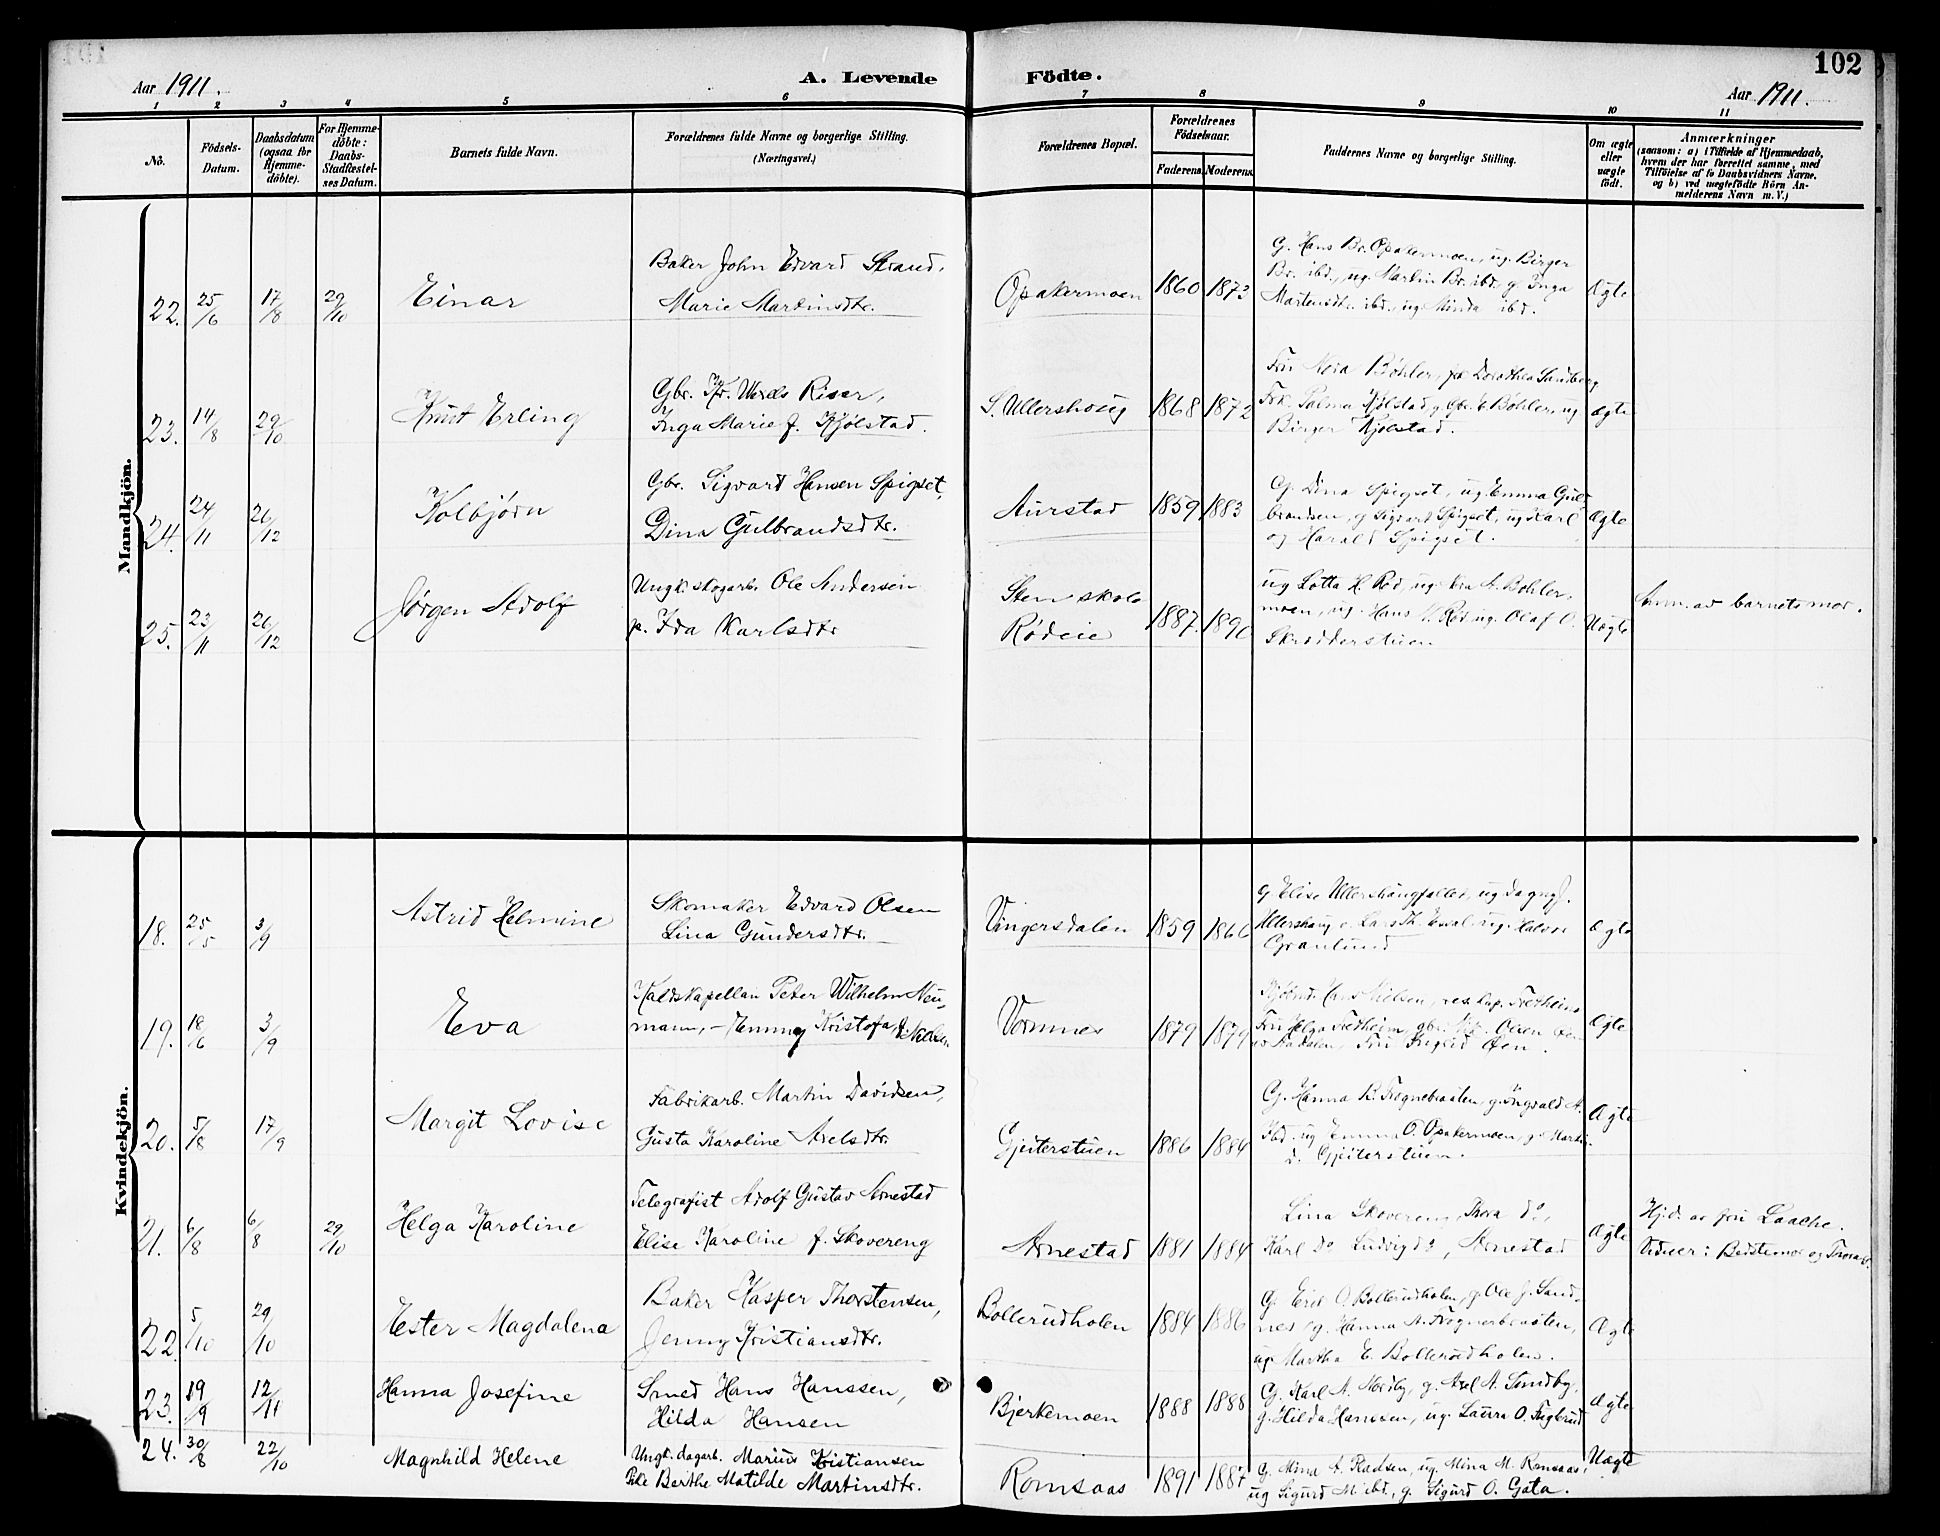 102
Aar 1911.
A. Levende Födte.
Aar 1911.
1 2 3 4 5 6 7 8 9 10 11
No.
Födsels-Datum.
Daabsdatum (ogsaa for Hjemme-döbte).
For Hjemme-döbte: Daabs-Stadfæstel-ses Datum.
Barnets fulde Navn.
Forældrenes fulde Navne og borgerlige Stilling.
(Næringsvei.)
Forældrenes Bopæl.
Forældrenes Födselsaar.
Faderens. Moderens.
Faddernes Navne og borgerlige Stilling.
Om ægte eller uægte födt.
Anmærkninger
(saasom: a) i Tilfælde af Hjemmedaab,
hvem der har forrettet samme, med
Tilföielse af to Daabsvidners Navne,
og b) ved uægtefödte Börn An-
melderens Navn m. V.)
Mandkjön.
22. 25/6 17/8 29/10 Einar
Baker John Edvard Strand,
Marie Martinsdtr.
Opakermoen 1860 1873
G. Hans Br. Opakermoen, ug. Birger
Br. ibd., ug. Martin Br. ibd., g. Inga
Martensdtr. ibd., ug. Minda ibd.
Ægte
23. 14/8 29/10 Knut Erling
Gbr. Kr. Wexels Riser,
Inga Marie f. Kjølstad.
S. Ullershoug 1868 1872
Fru Nora Bøhler, Dorothea Sandberg
Frk. Palma Kjølstad, Gbr. Bøhler, ug
Birger Kjølstad.
ægte
24. 24/11 26/12 Kolbjørn
Gbr. Sigvard Hansen Spigset,
Dina Gulbrandsdtr.
Aurstad 1859 1883
G. Dina Spigset, ug. Emma Gul-
brandsen, g Sigvard Spigset, ug Karl
og Harald Spigset.
Ægte
25. 23/11 26/12 Jørgen Adolf
Ungk. skogarb. Ole Andersen
p. Ida Karlsdtr
Stenskole
Rødeie
1887. 1890
ug Lotta H. Rød, ug. A. Bøhler-
moen, ug. Hans Rød, ug. Olaf O.
Skrædderstuen
Uægte
Anm. av barnets mor.
Kvindekjön.
18. 25/5 3/9 Astrid Helmine
Skomaker Edvard Olsen
Lina Gundersdtr.
Vingersdalen 1859 1866
g Elise Ullershaug, ug Dagny J.
Ullershaug, ug. Halvor
Granlund
Ægte
19. 18/6 3/9 Eva
Kaldskapellan Peter Wilhelm Neu-
mann, - Emmy Kristofa f. Nielsen
Vormnes 1879 1879
Hans Nielsen, res. kap. Tretheim
Fru Helga Tretheim, gbr.
Fru Sigrid Øen.
Ægte
20. 5/8 17/9 Margit Lovise
Fabrikarb. Martin Davidsen,
Gusta Karoline Axelsdtr
Gjeiterstuen 1886 1884
G. Hanna K. Trøgnebraaten, g. Ingvald A.
ibd. ug Emma O. Opakermoen, g. Martin
D. Gjeiterstuen.
Ægte
21. 6/8 6/8 29/10 Helga Karoline
Telegrafist Adolf Gustav Arnestad
Elise Karoline f. Skovereng
Arnestad 1881 1884
Lina Skovereng, Thora do,
Karl do Ludvig do, Arnestad
Ægte
Hjd. av fru Laache.
Vidner: Bedstemor og Thora S.
22. 5/10 29/10 Ester Magdalena
Baker Kasper Thorstensen,
Jenny Kristiansdtr.
Bollerudholen 1884 1886
G. Erik O. Bollerudholen, g. Ole J. Sand-
nes, g. Hanna A. Trøgnerbraaten,
ug. Martha E. Bollerudholen.
Ægte
23. 19/9 12/11 Hanna Josefine
Smed Hans Hanssen,
Hilda Hansen
Bjerkemoen 1888 1888
G. Karl A. Nordby, g. Axel A. Sundby,
g. Hilda Hanssen, ug. Laura O. Fuglerud
Ægte
24. 30/8 22/10 Magnhild Helene
Ungk. dagarb. Marius Kristiansen
Pike Berthe Matilde Martinsdtr.
Romsaas 1891 1887
G. Mina A. Radsen, ug. Mina M. Romsaas,
ug Sigurd M. ibd., g. Sigurd O. Gata.
Uægte